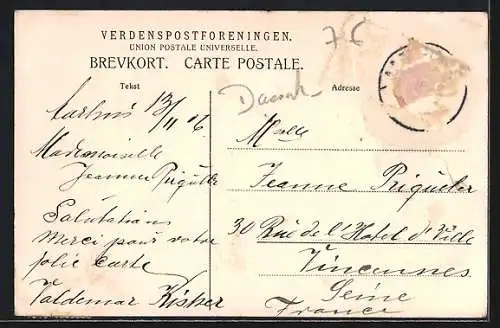 VERDENSPOSTFORENINGEN.
UNION POSTALE UNIVERSELLE.
BREVKORT. CARTE POSTALE.
76
Tekst
Adresse
Aarhus 13/11 06
Mademoiselle
Jeanne
Salutations
merci pour votre
jolie carte
Valdemar
Mlle
Jeanne
30 Rue de l'Hotel d'Ville
Vincennes
Seine
France